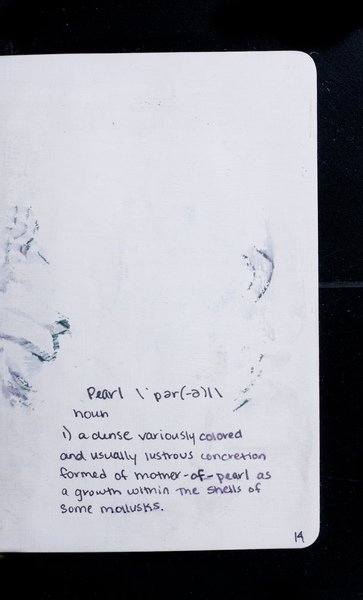 Pearl \ˈpər(-ə)l\
noun
1) a dense variously colored
and usually lustrous concretion
formed of mother-of-pearl as
a growth within the shells of
some mollusks.
14